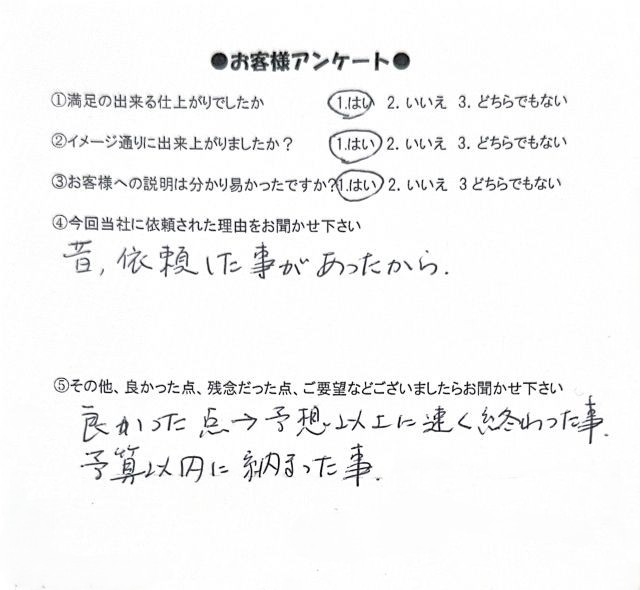 ●お客様アンケート●
①満足の出来る仕上がりでしたか 1.はい 2.いいえ 3.どちらでもない
②イメージ通りに出来上がりましたか？ 1.はい 2.いいえ 3.どちらでもない
③お客様への説明は分かり易かったですか？1.はい 2.いいえ 3どちらでもない
④今回当社に依頼された理由をお聞かせ下さい
昔,依頼した事があったから.
⑤その他、良かった点、残念だった点、ご要望などございましたらお聞かせ下さい
良かった点→予想以上に速く終わった事.
予算以内に納まった事.